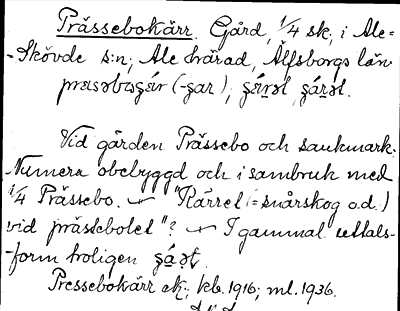 Prässebokärr. Gård, 1/4 sk, i Ale=
-Skövde s:n; Ale härad, Älfsborgs län
(-ʂar);
Vid gården Prässebo och sankmark.
Numera obebyggd och i sambruk med
1/4 Prässebo. "Kärret (=snårskog o.d.)
vid prästebolet"? I gammal uttals-
-form troligen
Pressebokärr ek; kb. 1916; ml. 1936.